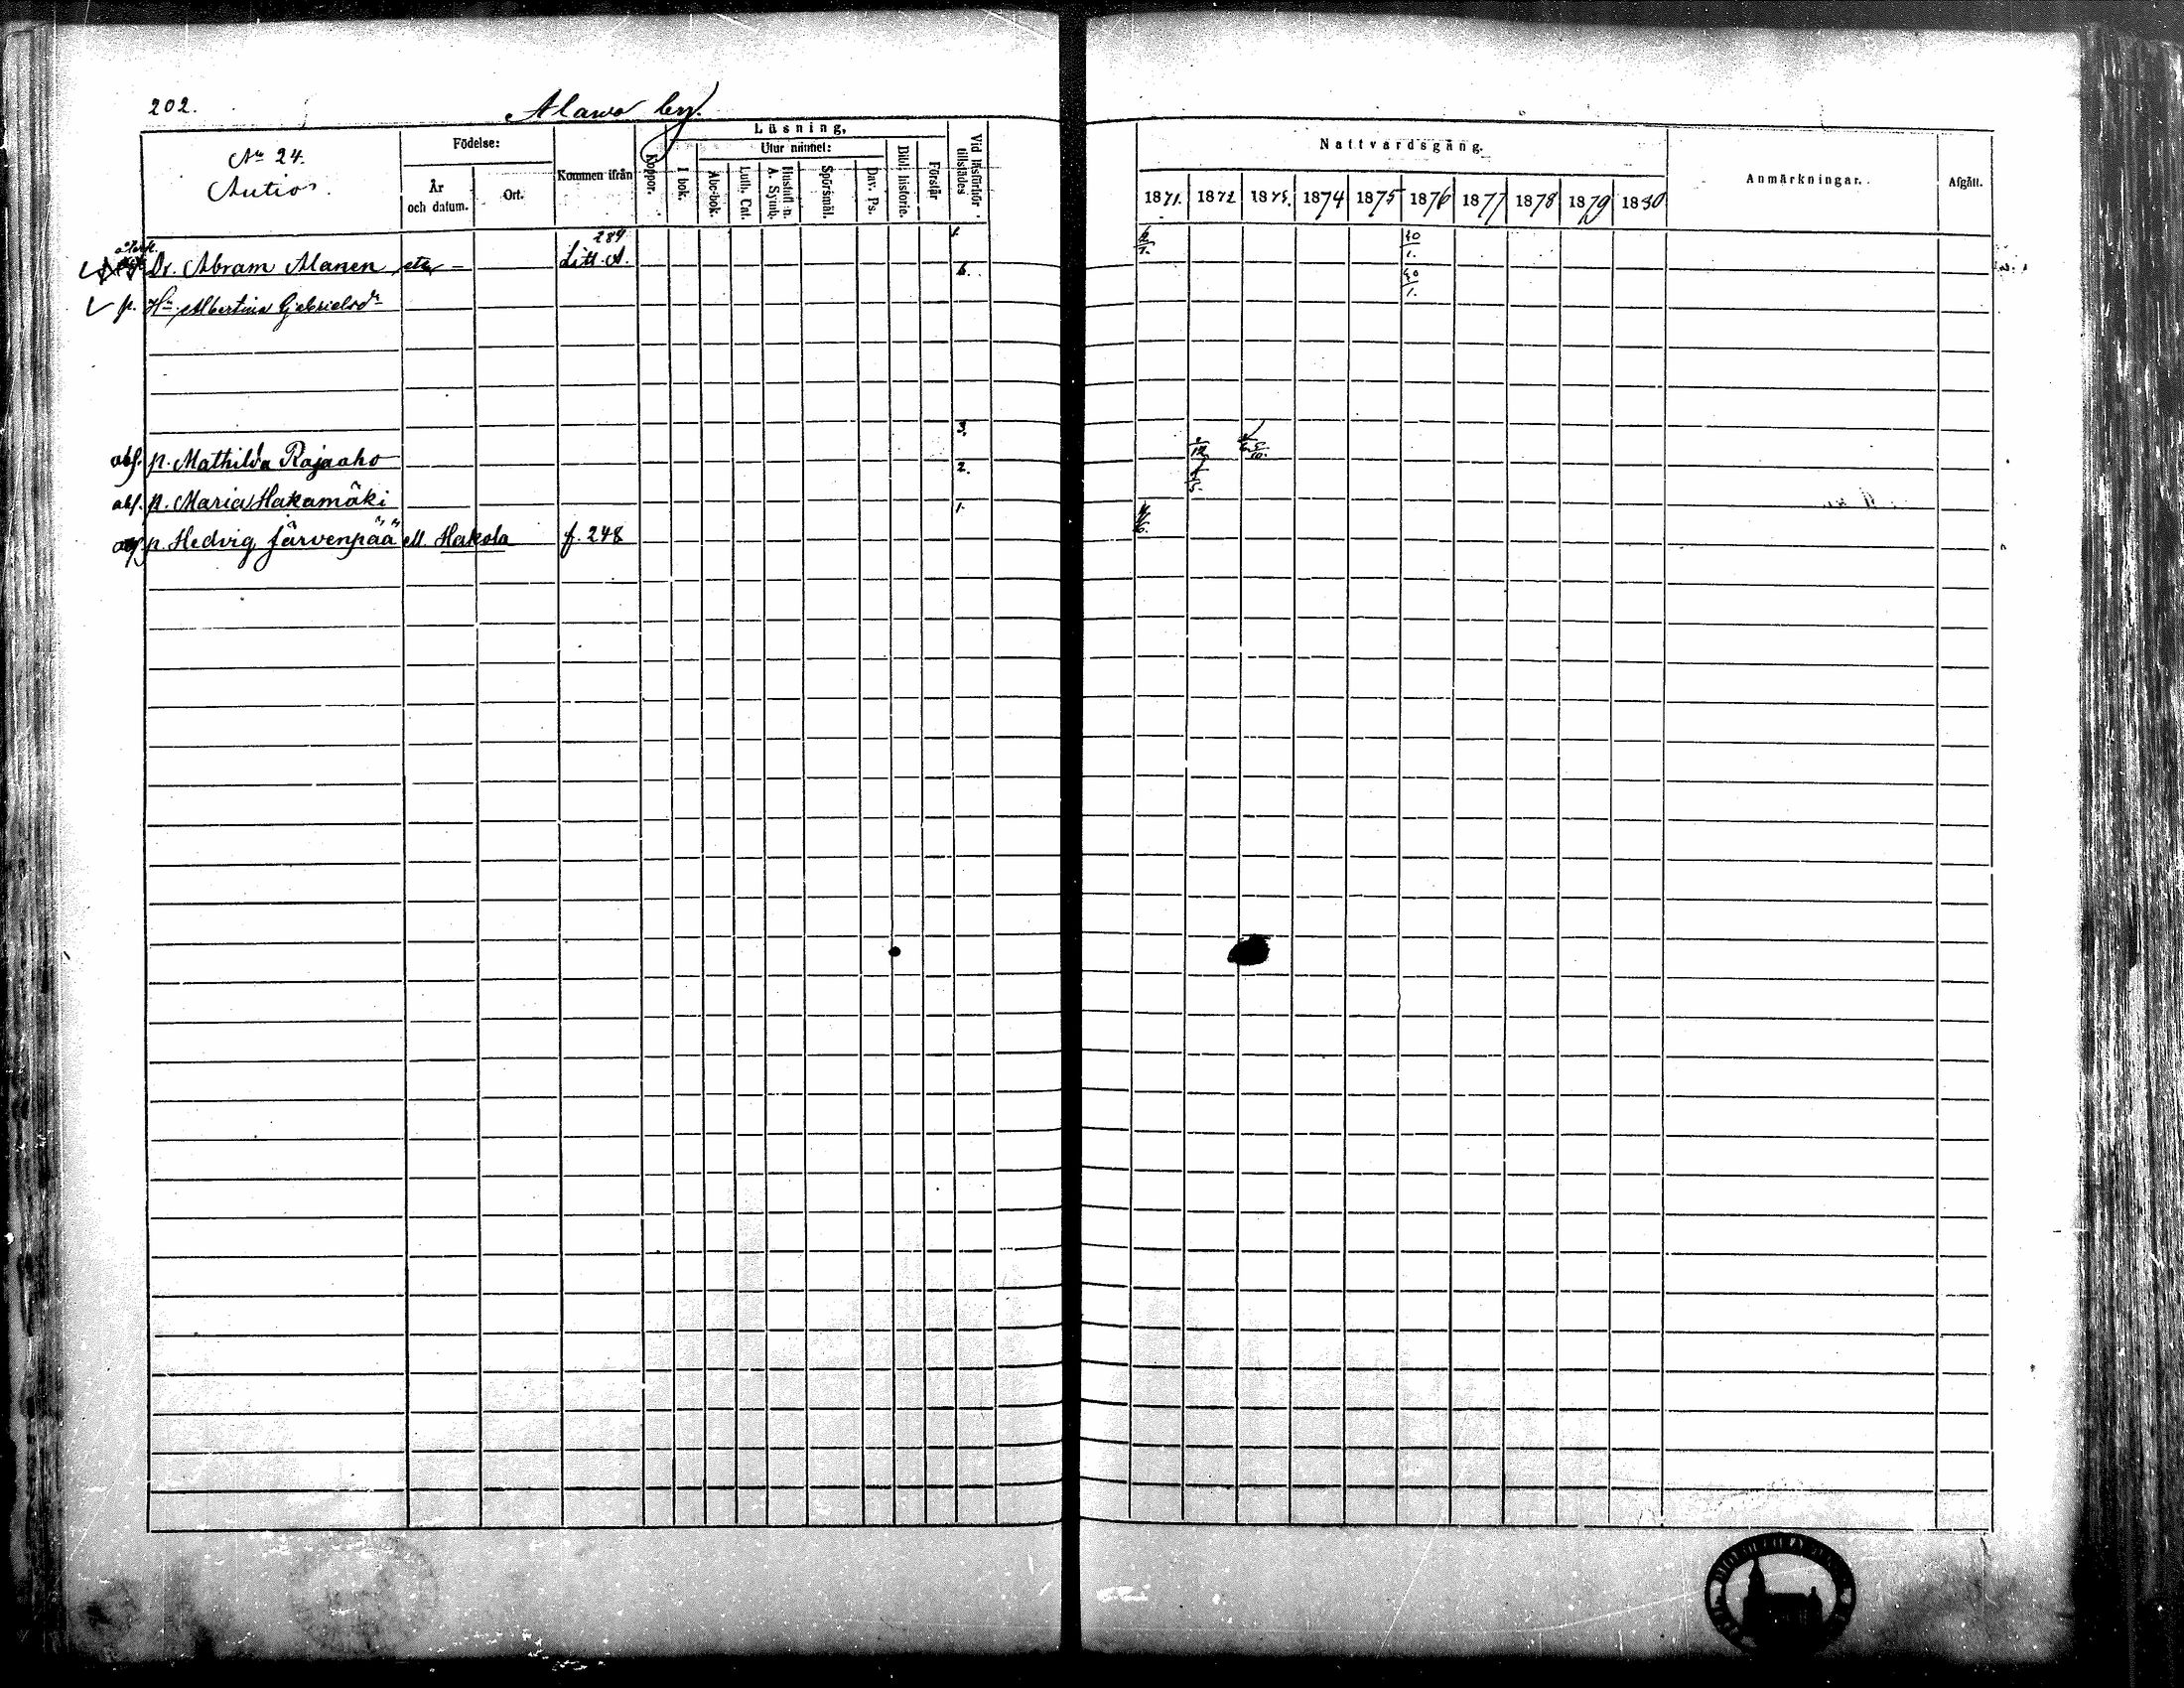 202.
Alawo by.
No 24.
Autio
Födelse:
År
och datum.
Ort.
Kommen ifrån
Koppor.
Läsning,
I bok.
Utur minnet:
Abc-bok.
Luth. Cat.
Hustafl. o.
A. Symb.
Spörsmål.
Dav. Ps.
Bibl. historie.
Förstår
Vid läsförhör
tillstädes
Nattvardsgång.
1871. 1872 1873. 1874 1875 1876 1877 1878 1879 1880
Anmärkningar.
Afgått.
Dr. Abram Alanen 284. Litt. A.
6.
p. Hu Albertina Gabrielsdr
abs. p. Mathilda Rajaaho 3.
abs. p. Maria Hakamäki 2.
p. Hedvig Järvenpää ell. Hakola f. 248 1.